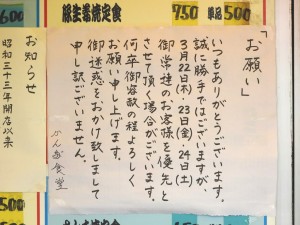 「お願い」
いつもありがとうございます。
誠に勝手ではございますが、
3月22日(木)・23日(金)・24日(土)
御常連のお客様を優先と
させて頂く場合がございます。
何卒御容赦の程よろしく
お願い申し上げます。
御迷惑をおかけ致しまして
申し訳ございません。
かんだ食堂
お知らせ
昭和三十三年開店以来
600
豚生姜焼定食
750
単品
500